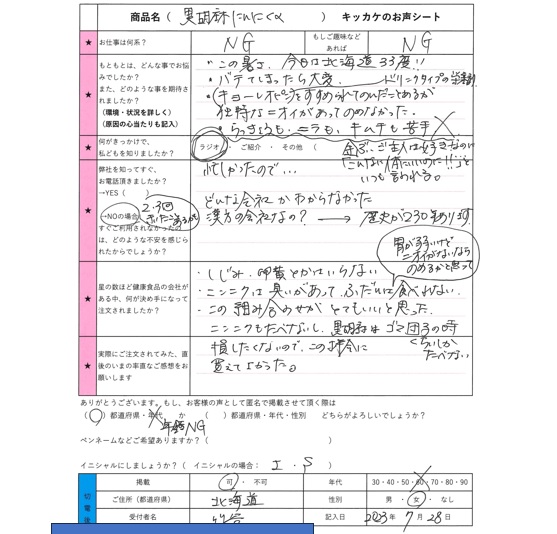 商品名（ 黒胡麻にんにくα ） キッカケのお声シート
★ お仕事は何系？ NG もしご趣味など あれば NG
★ もともとは、どんな事でお悩みでしたか？
また、どのような事を期待されましたか？
（環境・状況を詳しく）
（原因の心当たりも記入）
・この暑さ、今日は北海道33度!!
・バテてしまったら大変。
ドリンクタイプの
・キョーレオピンをすすめられてのんだことあるが
独特なニオイがあってのめなかった。
・らっきょうも、ニラも、キムチも苦手
★ 何がきっかけで、
私どもを知りましたか？
ラジオ ・ ご紹介 ・ その他 （
ご主人は好きなので
「こんなに体にいいのに!!」と
いつも言われる。
★ 弊社を知ってすぐ、
お電話頂きましたか？
→YES（ ）
→NOの場合
2、3回
すぐご利用されなかったのは、どのような不安を感じられたからでしょうか？
忙しかったので…
どんな会社かわからなかった
漢方の会社なの？ → 歴史が230年あります
胃が弱いけど
ニオイがないなら
のめるかと思って
★ 星の数ほど健康食品の会社がある中、何が決め手になって注文されましたか？
・しじみ、卵黄とかはいらない
・ニンニクは臭いがあって、ふだんは食べれない。
・この組み合わせが とてもいいと思った。
ニンニクもたべないし、黒胡麻はゴマ団子の時
くらいしか
たべない
★ 実際にご注文されてみた、直後のいまの率直なご感想をお願いします
損したくないので、この機会に
買えてよかった。
ありがとうございます。もし、お客様の声として匿名で掲載させて頂く際は
（○）都道府県・年代 か （ ）都道府県・年代・性別 どちらがよろしいでしょうか？
年齢NG
ペンネームなどご希望ありますか？（ ）
イニシャルにしましょうか？（ イニシャルの場合： I ・ S ）
掲載 可 ・ 不可 年代 30・40・50・60・70・80・90
ご住所（都道府県） 北海道 性別 男 ・ 女 ・ なし
受付者名 記入日 2023年 7月 28日